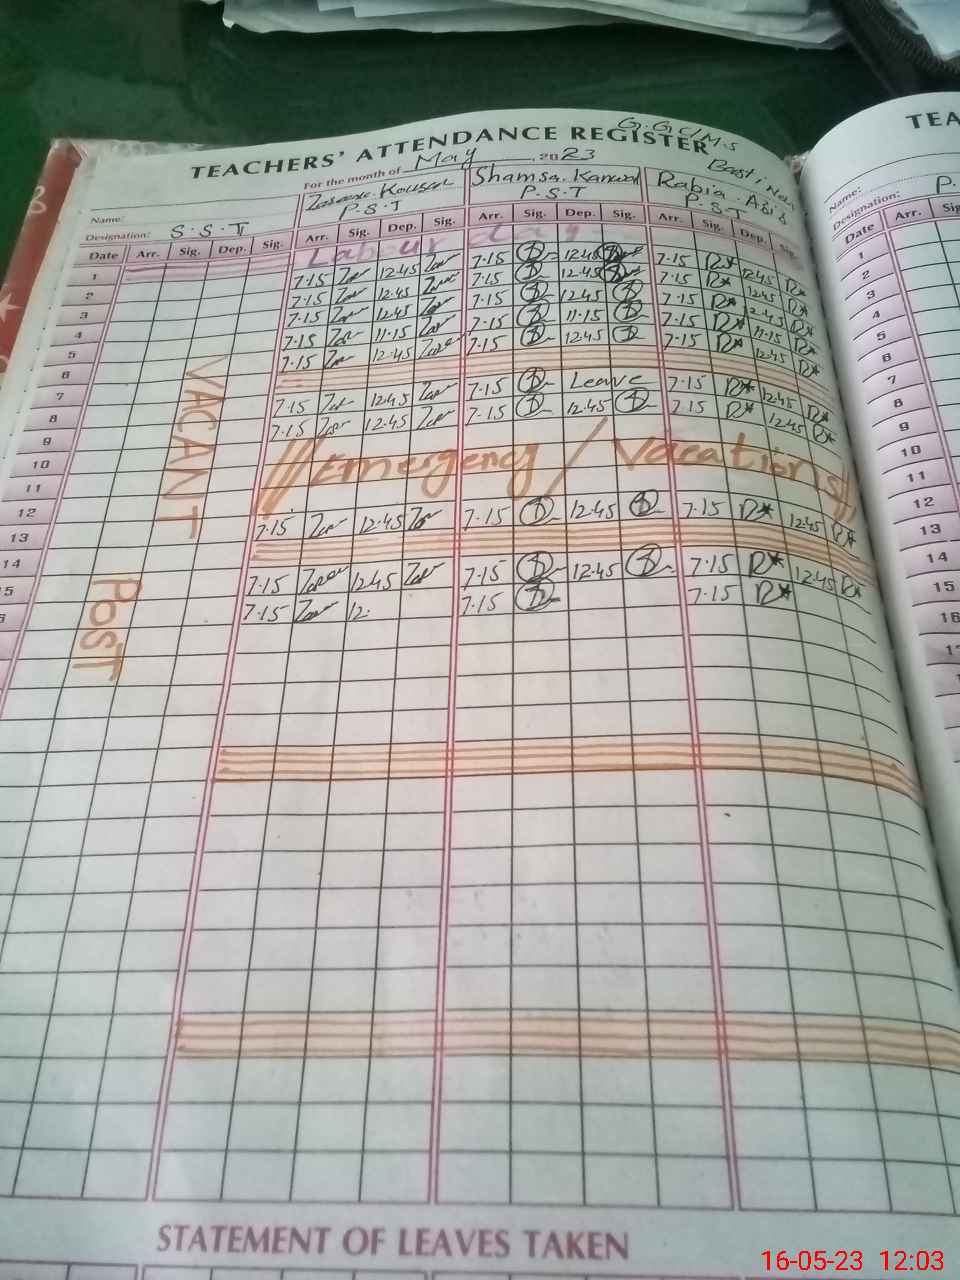 G.G.C.M.S
TEACHERS' ATTENDANCE REGISTER
For the month of May, 2023
Name: Shamsa. Kanwal Rabia. Abid
Designation: S.S.T P.S.T P.S.T P.S.T
Date Arr. Sig. Dep. Sig. Arr. Sig. Dep. Sig. Arr. Sig. Dep. Sig. Arr. Sig. Dep. Sig.
1 Labour day
2 7.15 12.45 7.15 12.45 7.15 R* 12.45 R*
3 7.15 12.45 7.15 12.45 7.15 R* 12.45 R*
4 7.15 12.45 7.15 12.45 7.15 R* 12.45 R*
5 7.15 11.15 7.15 11.15 7.15 R* 11.15 R*
6 7.15 12.45 7.15 12.45 7.15 R* 12.45 R*
7
8 7.15 12.45 7.15 Leave 7.15 R* 12.45 R*
9 7.15 12.45 7.15 12.45 7.15 R* 12.45 R*
10 // Emergency / Vacations //
11
12
13 7.15 12.45 7.15 12.45 7.15 R* 12.45 R*
14
5 7.15 12.45 7.15 12.45 7.15 R* 12.45 R*
7.15 12. 7.15 7.15 R*
VACANT
POST
STATEMENT OF LEAVES TAKEN
TEA
Name:
Designation: P.
Date Arr.
1
2
3
4
5
6
7
8
9
10
11
12
13
14
15
16
16-05-23 12:03